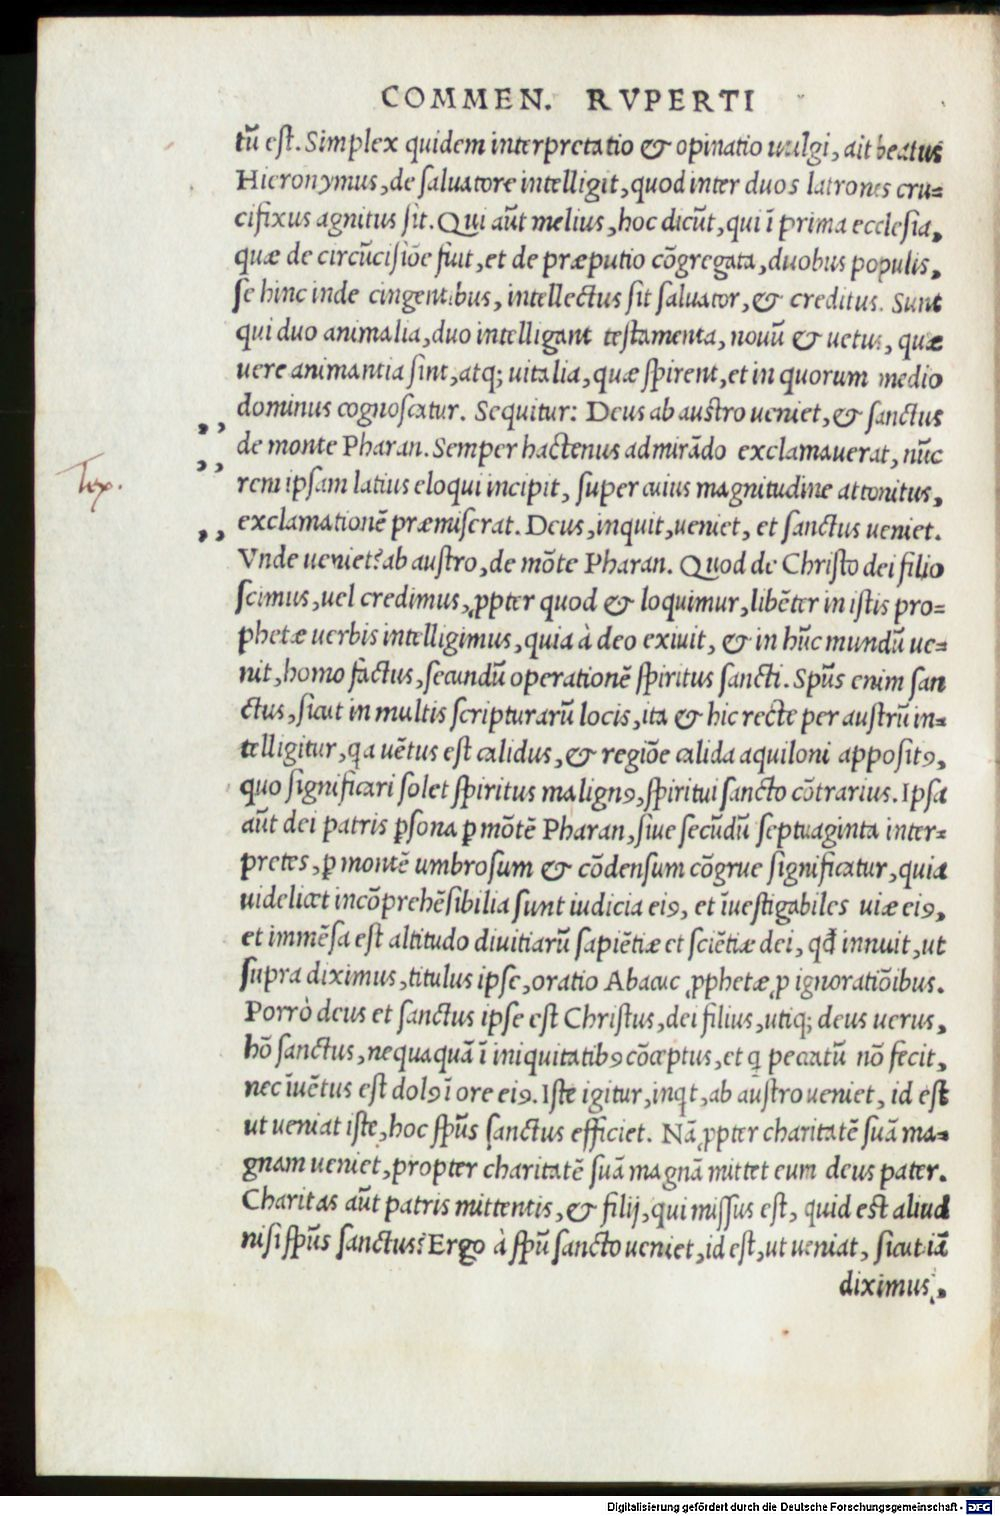 COMMEN. RVPERTI
tũ est. Simplex quidem interpretatio & opinatio uulgi, ait beatus
Hieronymus, de saluatore intelligit, quod inter duos latrones cru=
cifixus agnitus sit. Qui aũt melius, hoc dicũt, qui ĩ prima ecclesia,
quæ de circũcisiõe fuit, et de præputio cõgregata, duobus populis,
se hinc inde cingentibus, intellectus sit saluator, & creditus. Sunt
qui duo animalia, duo intelligant testamenta, nouũ & uetus, quæ
uere animantia sint, atq; uitalia, quæ spirent, et in quorum medio
dominus cognoscatur. Sequitur: Deus ab austro ueniet, & sanctus
,,
de monte Pharan. Semper hactenus admirãdo exclamauerat, nũc
,,
Tex.
rem ipsam latius eloqui incipit, super cuius magnitudine attonitus,
exclamationẽ præmiserat. Deus, inquit, ueniet, et sanctus ueniet.
,,
Vnde ueniet? ab austro, de mõte Pharan. Quod de Christo dei filio
scimus, uel credimus, ꝓpter quod & loquimur, libẽter in istis pro=
phetæ uerbis intelligimus, quia à deo exiuit, & in hũc mundũ ue=
nit, homo factus, secundũ operationẽ spiritus sancti. Spũs enim san
ctus, sicut in multis scripturarũ locis, ita & hic recte per austrũ in=
telligitur, qa uẽtus est calidus, & regiõe calida aquiloni apposit9,
quo significari solet spiritus malign9, spiritui sancto cõtrarius. Ipsa
aũt dei patris ꝑsona ꝑ mõtẽ Pharan, siue secũdũ septuaginta inter=
pretes, ꝑ montẽ umbrosum & cõdensum cõgrue significatur, quia
uidelicet incõprehẽsibilia sunt iudicia ei9, et ĩuestigabiles uiæ ei9,
et immẽsa est altitudo diuitiarũ sapiẽtiæ et sciẽtiæ dei, qđ innuit, ut
supra diximus, titulus ipse, oratio Abacuc ꝓphetæ ꝓ ignoratiõibus.
Porrò deus et sanctus ipse est Christus, dei filius, utiq; deus uerus,
hõ sanctus, nequaquã ĩ iniquitatib9 cõceptus, et q peccatũ nõ fecit,
nec ĩuẽtus est dol9 ĩ ore ei9. Iste igitur, inqt, ab austro ueniet, id est
ut ueniat iste, hoc spũs sanctus efficiet. Nã ꝓpter charitatẽ suã ma=
gnam ueniet, propter charitatẽ suã magnã mittet eum deus pater.
Charitas aũt patris mittentis, & filij, qui missus est, quid est aliud
nisi spũs sanctus? Ergo à spũ sancto ueniet, id est, ut ueniat, sicut iã
diximus,
Digitalisierung gefördert durch die Deutsche Forschungsgemeinschaft - DFG